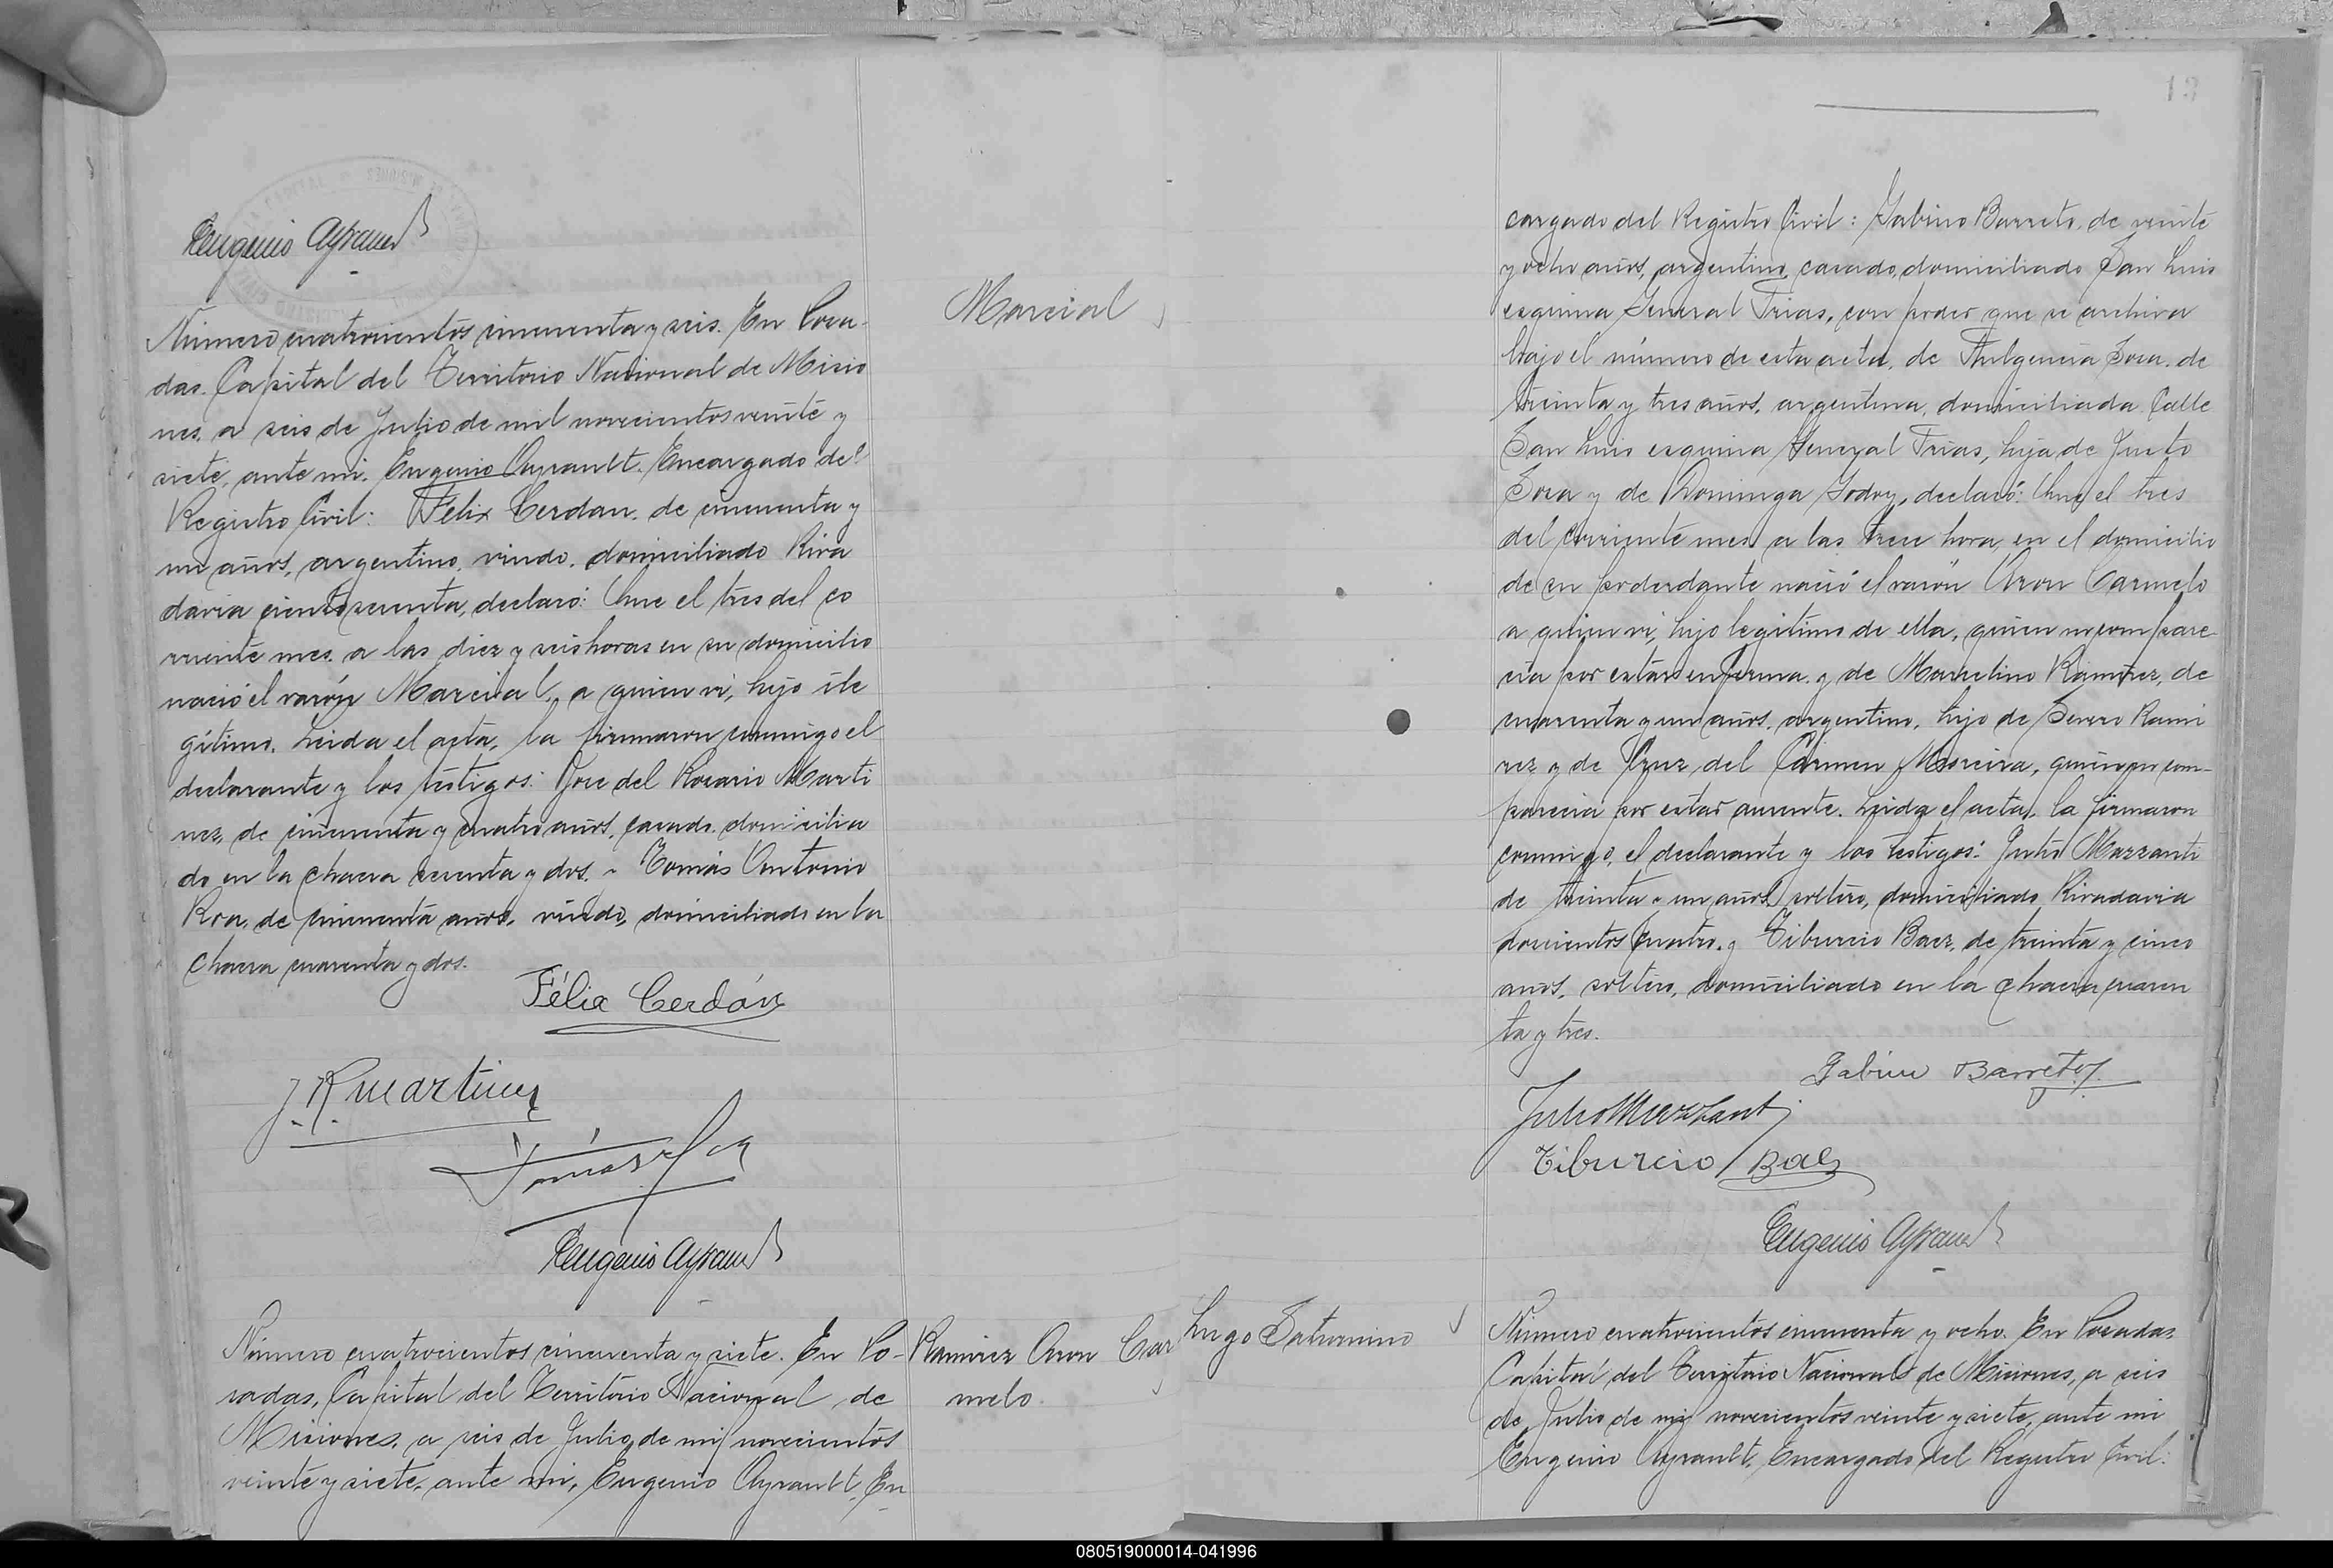 Eugenio Ayrault
Marcial
Número cuatrocientos cincuenta y seis. En Posa-
das. Capital del Territorio Nacional de Misio
nes, a seis de Julio de mil novecientos veinte y
siete, ante mi, Eugenio Ayrault. Encargado del
Registro Civil: Félix Cerdan, de cincuenta y
un años, argentino, viudo, domiciliado Riva
davia ciento sesenta, declaró: Que el tres del co
rriente mes, a las diez y seis horas en su domicilio
nació el varón Marcial, a quien vi, hijo ile
gítimo. Leida el acta, la firmaron conmigo el
declarante y los testigos: Jose del Rosario Marti
nez, de cincuenta y cuatro años, casado, domicilia
do en la chacra cuarenta y dos. y Tomás Antonio
Roa, de cincuenta años, viudo, domiciliado en la
chacra cuarenta y dos.
Félix Cerdán
J. R. Martinez
Tomás Roa
Eugenio Ayrault
Número cuatrocientos cincuenta y siete. En Po-
sadas, Capital del Territorio Nacional de
Misiones, a seis de Julio de mil novecientos
veinte y siete, ante mi, Eugenio Ayrault, En
Ramirez Aron Car
melo.
13
cargado del Registro Civil: Gabino Barreto, de veinte
y ocho años, argentino, casado, domiciliado San Luis
esquina General Frias, con poder que se archiva
bajo el número de esta acta, de Fulgencia Sosa, de
treinta y tres años, argentina, domiciliada Calle
San Luis esquina General Frias, hija de Justo
Sosa y de Dominga Godoy, declaró: Que el tres
del corriente mes, a las trece hora, en el domicilio
de su poderdante nació el varón Aron Carmelo
a quien vi, hijo legítimo de ella, quien no compare
cia por estar enferma, y de Marcelino Ramirez, de
cuarenta y un años, argentino, hijo de Severo Rami
rez y de Cruz del Cármen Moreira, quien no com-
parecia por estar ausente. Leida el acta, la firmaron
conmigo, el declarante y los testigos: Julio Mazzanti
de treinta y un años, soltero, domiciliado Rivadavia
doscientos cuatro, y Tiburcio Baez, de treinta y cinco
años, soltero, domiciliado en la chacra cuaren
ta y tres.
Gabino Barreto
Julio Mazzanti
Tiburcio Baez
Eugenio Ayrault
Lugo Saturnino
Número cuatrocientos cincuenta y ocho. En Posadas,
Capital del Territorio Nacional de Misiones, a seis
de Julio de mil novecientos veinte y siete, ante mi
Eugenio Ayrault, Encargado del Registro Civil:
080519000014-041996